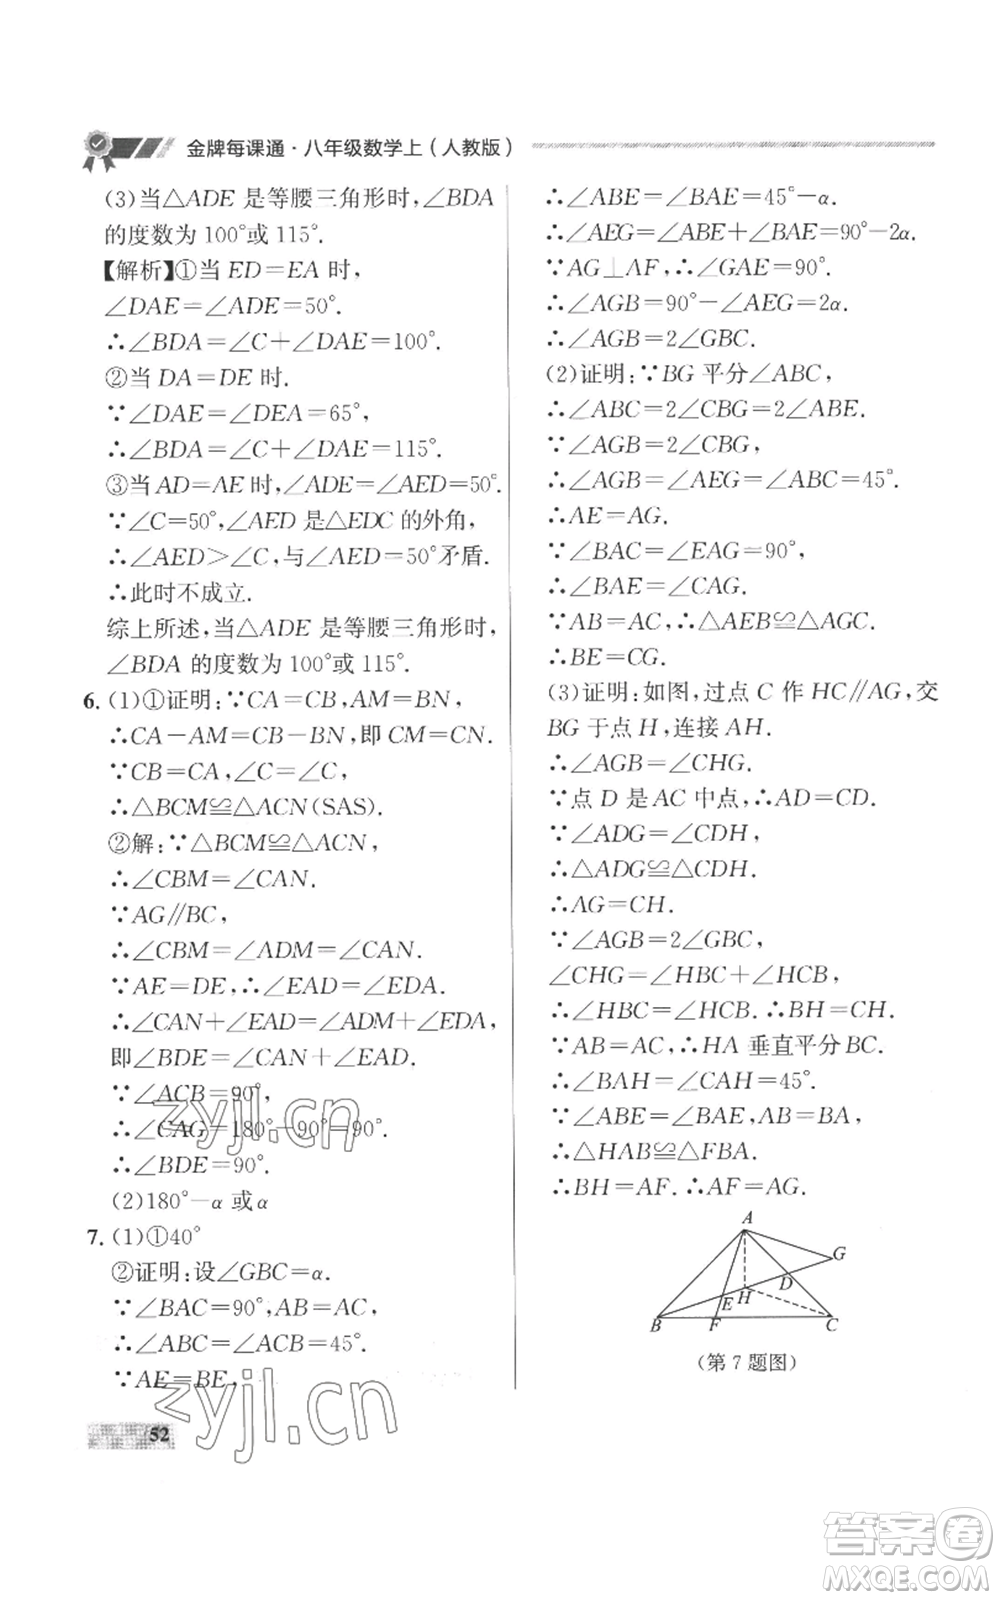 金牌每课通·八年级数学上(人教版)
(3)当△ADE 是等腰三角形时,∠BDA
的度数为 100°或 115°.
【解析】①当 ED=EA 时,
∠DAE=∠ADE=50°.
∴∠BDA=∠C+∠DAE=100°.
②当 DA=DE 时.
∵∠DAE=∠DEA=65°,
∴∠BDA=∠C+∠DAE=115°.
③当 AD=AE 时,∠ADE=∠AED=50°.
∵∠C=50°,∠AED 是△EDC 的外角,
∴∠AED>∠C,与∠AED=50°矛盾.
∴此时不成立.
综上所述,当△ADE 是等腰三角形时,
∠BDA 的度数为 100°或 115°.
6. (1)①证明:∵CA=CB,AM=BN,
∴CA-AM=CB-BN,即 CM=CN.
∵CB=CA,∠C=∠C,
∴△BCM≌△ACN(SAS).
②解:∵△BCM≌△ACN,
∴∠CBM=∠CAN.
∵AG∥BC,
∴∠CBM=∠ADM=∠CAN.
∵AE=DE,∴∠EAD=∠EDA.
∴∠CAN+∠EAD=∠ADM+∠EDA,
即∠BDE=∠CAN+∠EAD.
∵∠ACB=90°,
∴∠CAG=180°-90°=90°.
∴∠BDE=90°.
(2)180°-α 或 α
7. (1)①40°
②证明:设∠GBC=α.
∵∠BAC=90°,AB=AC,
∴∠ABC=∠ACB=45°.
∵AE=BE,
52
∴∠ABE=∠BAE=45°-α.
∴∠AEG=∠ABE+∠BAE=90°-2α.
∵AG⊥AF,∴∠GAE=90°.
∴∠AGB=90°-∠AEG=2α.
∴∠AGB=2∠GBC.
(2)证明:∵BG 平分∠ABC,
∴∠ABC=2∠CBG=2∠ABE.
∵∠AGB=2∠CBG,
∴∠AGB=∠AEG=∠ABC=45°.
∴AE=AG.
∵∠BAC=∠EAG=90°,
∴∠BAE=∠CAG.
∵AB=AC,∴△AEB≌△AGC.
∴BE=CG.
(3)证明:如图,过点 C 作 HC∥AG,交
BG 于点 H,连接 AH.
∴∠AGB=∠CHG.
∵点 D 是 AC 中点,∴AD=CD.
∵∠ADG=∠CDH,
∴△ADG≌△CDH.
∴AG=CH.
∵∠AGB=2∠GBC,
∠CHG=∠HBC+∠HCB,
∴∠HBC=∠HCB.∴BH=CH.
∵AB=AC,∴HA 垂直平分 BC.
∴∠BAH=∠CAH=45°.
∵∠ABE=∠BAE,AB=BA,
∴△HAB≌△FBA.
∴BH=AF.∴AF=AG.
A
G
D
E H
B F C
(第 7 题图)
zyjl.cn
zyjl.cn
答案卷
MXQE.COM